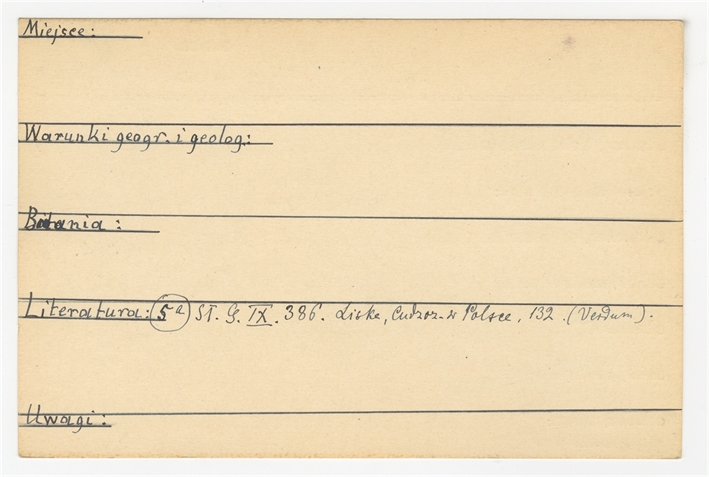 Miejsce:
Warunki geogr. i geolog.:
Badania:
Literatura: 5a Sł. G. IX. 386. Liske, Cudzoz. w Polsce, 132. (Verdum).
Uwagi: